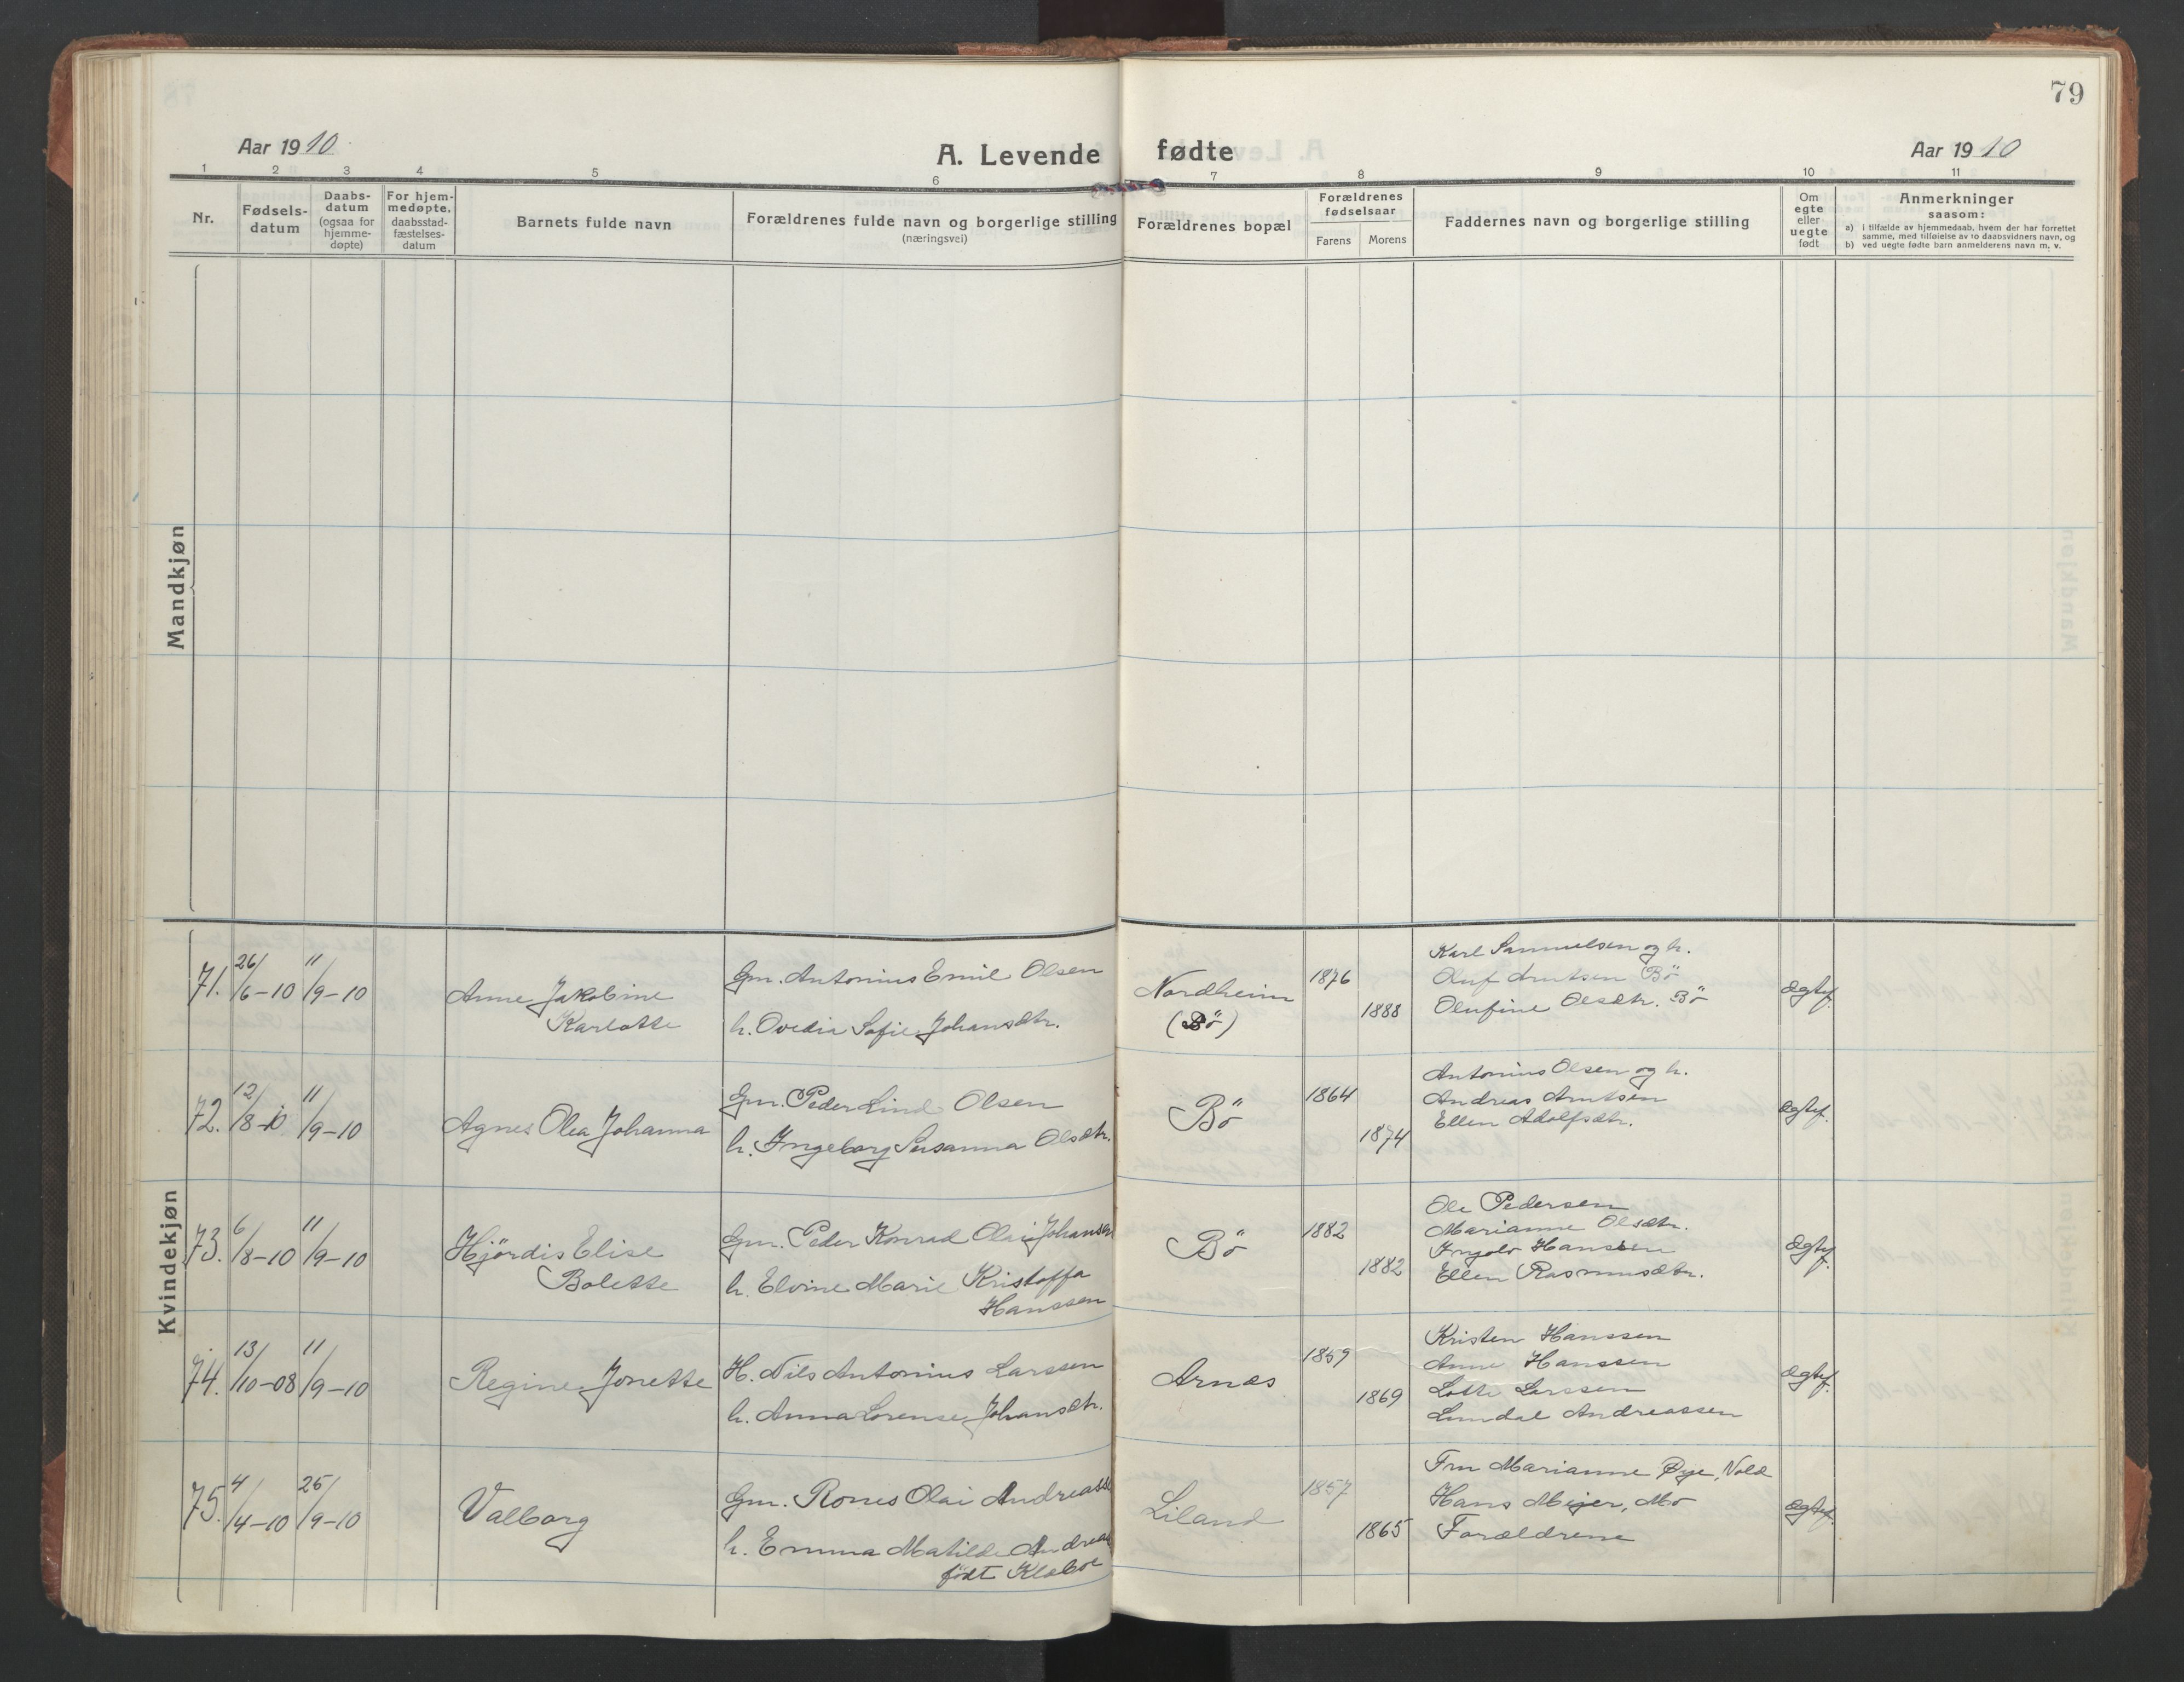 79
Aar 1910
A. Levende fødte
Aar 1910
1 2 3 4 5 6 7 8 9 10 11
Nr.
Fødsels-
datum
Daabs-
datum
(ogsaa for
hjemme-
døpte)
For hjem-
medøpte,
daabsstad-
fæstelses-
datum
Barnets fulde navn
Forældrenes fulde navn og borgerlige stilling
(næringsvei)
Forældrenes bopæl
Forældrenes
fødselsaar
Farens Morens
Faddernes navn og borgerlige stilling
Om
egte
eller
uegte
født
Anmerkninger
saasom:
a) i tilfælde av hjemmedaab, hvem der har forrettet
samme, med tilføielse av to daabsvidners navn, og
b) ved uegte fødte barn anmelderens navn m. v.
Mandkjøn
Kvindekjøn
71. 26/6-10 11/9-10
Anne Jakobine
Karlotte
Gm. Antonius Emil Olsen
h. Ovedia Sofie Johansdtr.
Nordheim
(Bö)
1876
1888
Karl Samuelsen og h.
Oluf Arntsen Bö
Olufine Olsdtr. Bö
Ægtef.
72. 12/8-10 11/9-10
Agnes Olea Johanna
Gm. Peder Lind Olsen
h. Ingeborg Susanna Olsdtr.
Bö
1864
1874
Antonius Olsen og h.
Andreas Arntsen
Ellen Adolfsdtr.
Ægtef.
73. 6/8-10 11/9-10
Hjördis Elise
Bolette
Gm. Peder Konrad Olai Johansen
h. Elvine Marie Kristoffa
Hanssen
Bö
1882
1882
Ole Pedersen
Marianne Olsdtr.
Ingolv Hanssen
Ellen Rasmusdtr.
Ægtef.
74. 13/10-08 11/9-10
Regine Jonette
H. Nils Antonius Larssen
h. Anna Lorense Johansdtr.
Arnæs
1859
1869
Kristen Hanssen
Anne Hanssen
Lotte Larssen
Lundal Andreassen
Ægtef.
75. 4/4-10 25/9-10
Valborg
Gm. Rones Olai Andreasse
h. Emma Matilde Andreas
födt Klæboe
Liland
1857
1865
Fru Marianne Øye, Vold
Hans Meijer, Mo
Forældrene
Ægtef.